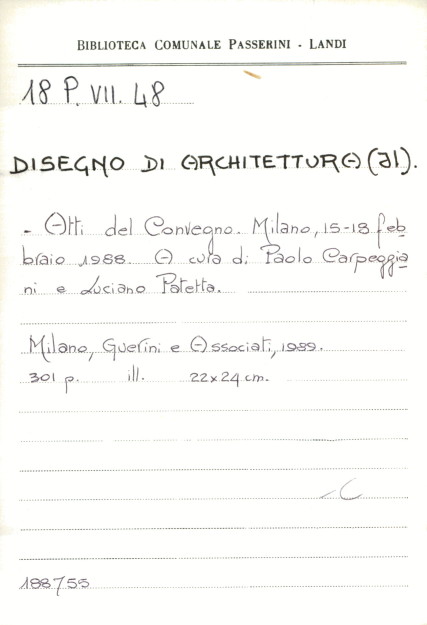 BIBLIOTECA COMUNALE PASSERINI - LANDI
18 P. VII. 48
DISEGNO DI ARCHITETTURA (Il).
- Atti del Convegno. Milano, 15-18 feb
braio 1988. A cura di Paolo Carpeggia
ni e Luciano Patetta.
Milano, Guerini e Associati, 1989.
301 p. ill. 22x24 cm.
188755